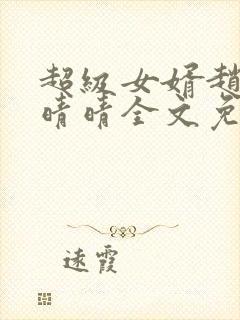 超级女婿趙
晴晴全文免
遠霞